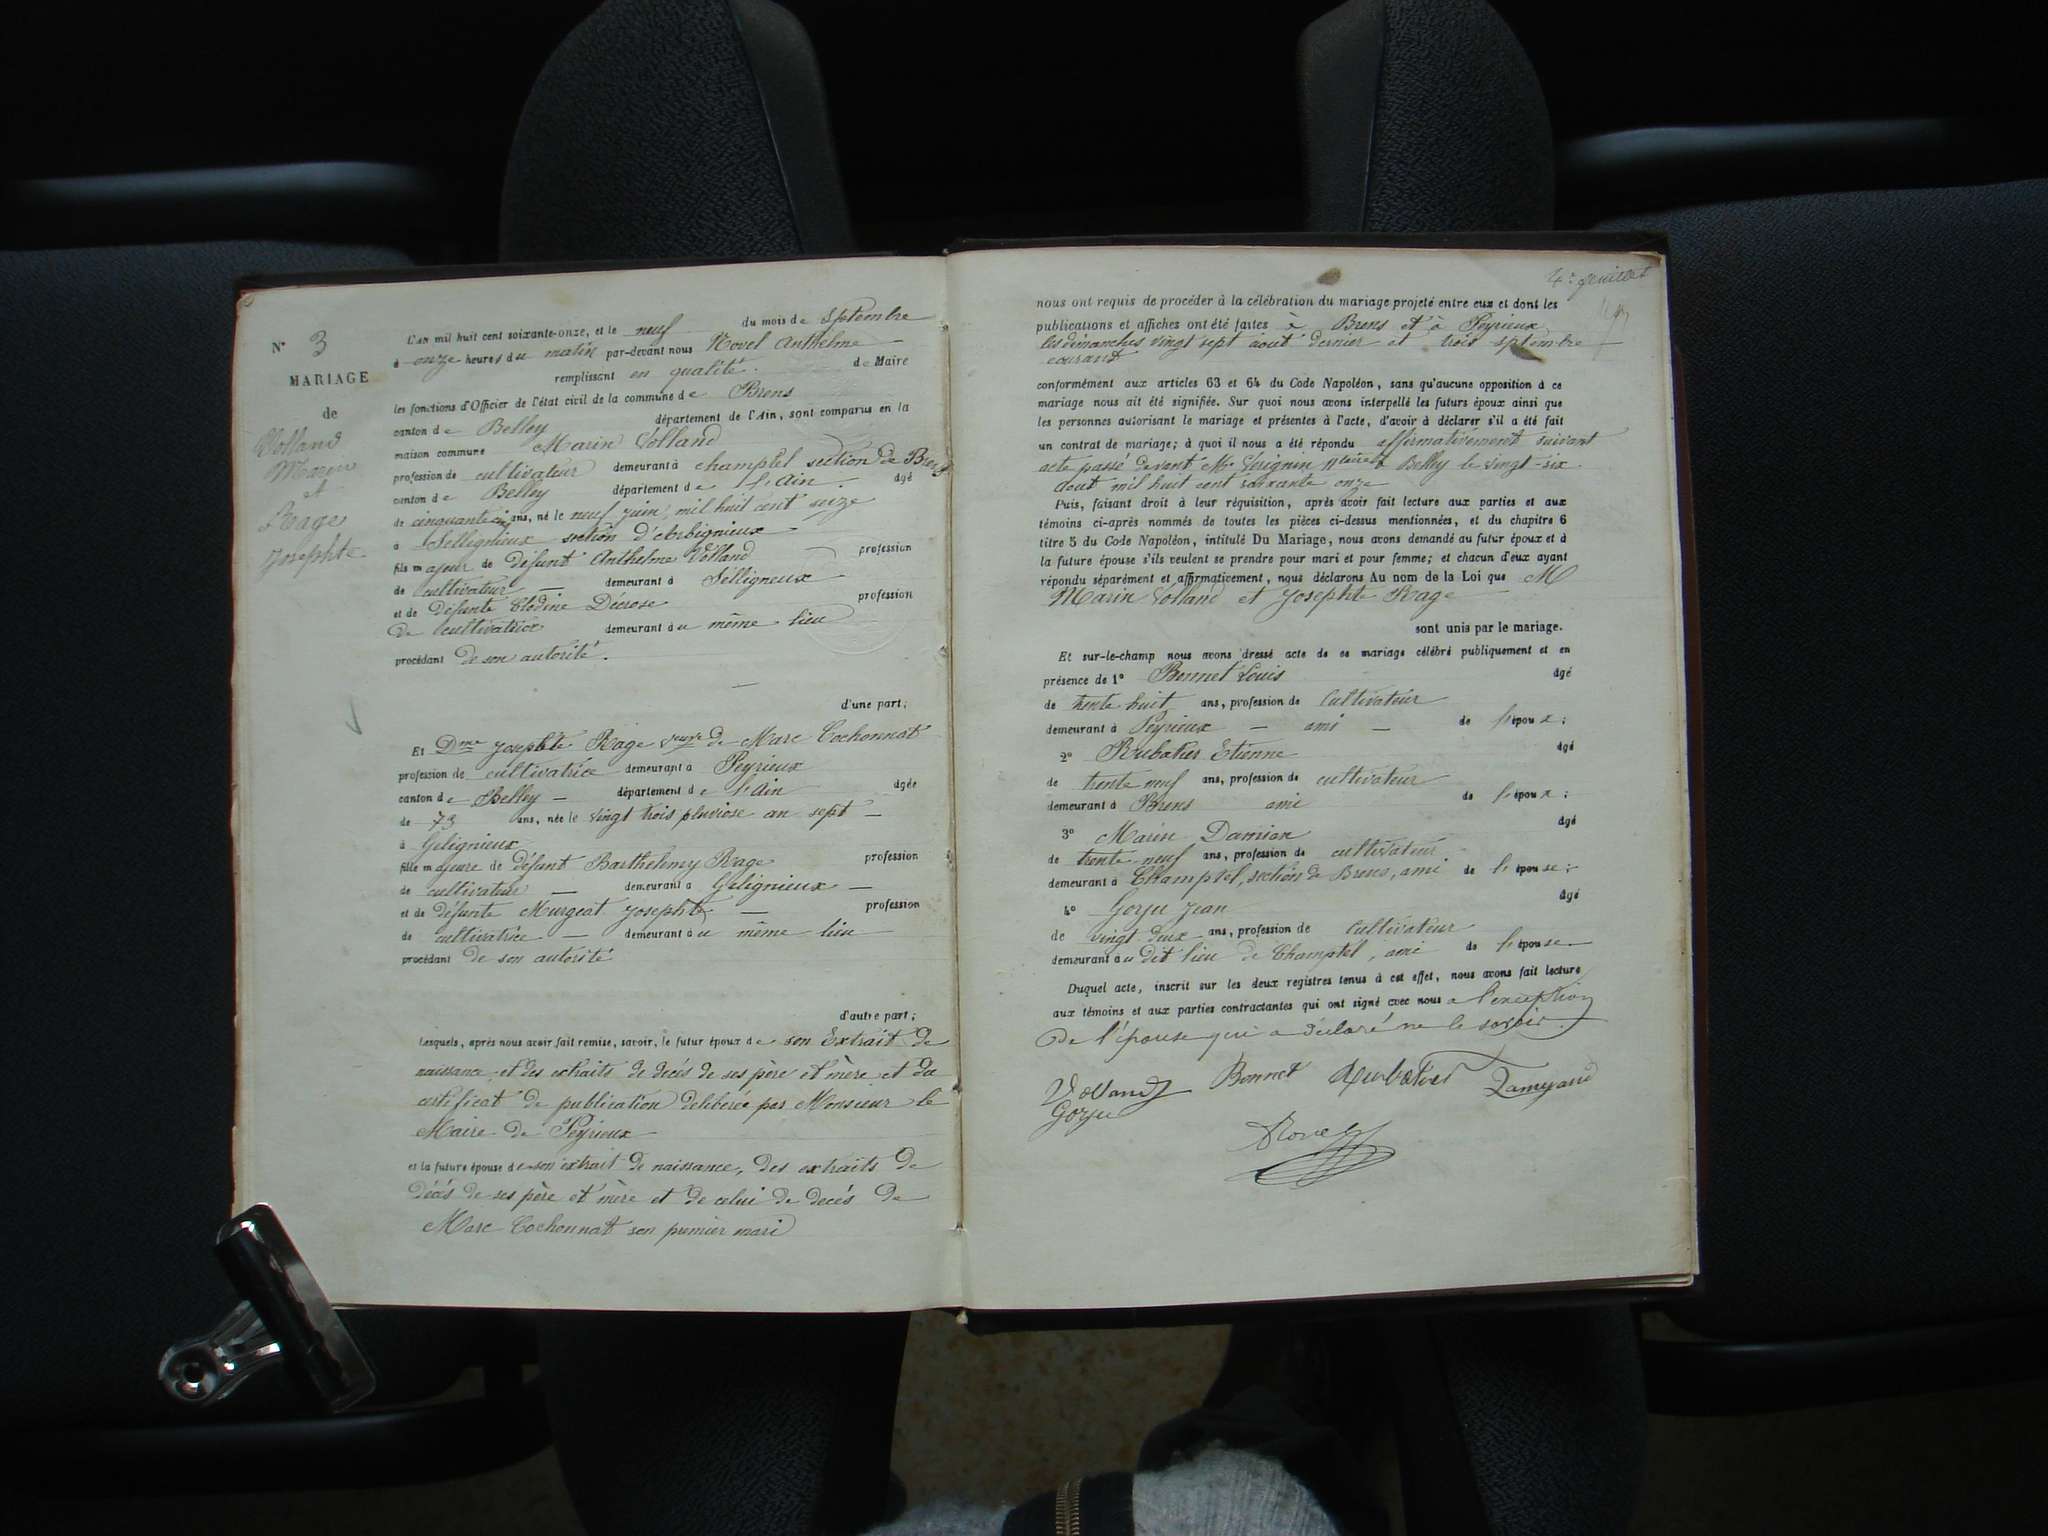 N° 3
MARIAGE
de
Volland
Marin
et
Rage
Josephte
L'AN mil huit cent soixante-onze, et le neuf du mois de Septembre
à onze heures du matin par-devant nous Novel Anthelme
remplissant en qualité de Maire
les fonctions d'Officier de l'état civil de la commune de Brens
canton de Belley département de l'AIN, sont comparus en la
maison commune Marin Volland
profession de cultivateur demeurant à Champtel section de Brens
canton de Belley département de l'Ain âgé
de cinquante cinq ans, né le neuf juin mil huit cent seize
à Sellignieux section d'Arbignieux
fils majeur de défunt Anthelme Volland profession
de cultivateur demeurant à Sélligneux
et de défunte Clodine Décrose profession
de cultivatrice demeurant au même lieu
procédant de son autorité.
d'une part;
Et Dme Josephte Rage veuve de Marc Cochonnat
profession de cultivatrice demeurant à Peyrieux
canton de Belley département de l'Ain âgée
de 73 ans, née le vingt trois pluviose an sept
à Gélignieux
fille majeure de défunt Barthelemy Rage profession
de cultivateur demeurant à Gélignieux
et de défunte Murgeat Josephte profession
de cultivatrice demeurant au même lieu
procédant de son autorité
d'autre part;
Lesquels, après nous avoir fait remise, savoir, le futur époux de son Extrait de
naissance et des extraits de décés de ses père et mère et du
certificat de publication deliberée par Monsieur le
Maire de Peyrieux
et la future épouse de son extrait de naissance, des extraits de
décés de ses père et mère et de celui de decés de
Marc Cochonnat son premier mari
4e feuillet
nous ont requis de procéder à la célébration du mariage projeté entre eux et dont les
publications et affiches ont été faites à Brens et à Peyrieux
les dimanches vingt sept août dernier et trois septembre
courant
conformément aux articles 63 et 64 du Code Napoléon, sans qu'aucune opposition à ce
mariage nous ait été signifiée. Sur quoi nous avons interpellé les futurs époux ainsi que
les personnes autorisant le mariage et présentes à l'acte, d'avoir à déclarer s'il a été fait
un contrat de mariage; à quoi il nous a été répondu affirmativement suivant
acte passé devant Me à Belley le vingt-six
août mil huit cent soixante onze
Puis, faisant droit à leur réquisition, après avoir fait lecture aux parties et aux
témoins ci-après nommés de toutes les pièces ci-dessus mentionnées, et du chapitre 6
titre 5 du Code Napoléon, intitulé Du Mariage, nous avons demandé au futur époux et à
la future épouse s'ils veulent se prendre pour mari et pour femme; et chacun d'eux ayant
répondu séparément et affirmativement, nous déclarons Au nom de la Loi que M
Marin Volland et Josephte Rage
sont unis par le mariage.
Et sur-le-champ nous avons dressé acte de ce mariage célébré publiquement et en
présence de 1° Bonnet Louis âgé
de trente huit ans, profession de cultivateur
demeurant à Peyrieux ami de l'époux;
2° Rubatier Etienne âgé
de trente neuf ans, profession de cultivateur
demeurant à Brens ami de l'époux;
3° Marin Damian âgé
de trente neuf ans, profession de cultivateur
demeurant à Champtel, section de Brens, ami de l'épouse;
4° Gorju Jean âgé
de vingt deux ans, profession de cultivateur
demeurant au dit lieu de Champtel, ami de l'épouse
Duquel acte, inscrit sur les deux registres tenus à cet effet, nous avons fait lecture
aux témoins et aux parties contractantes qui ont signé avec nous a l'exception
de l'épouse qui a déclaré ne le savoir.
Volland Bonnet Rubatier
Gorju
Novel